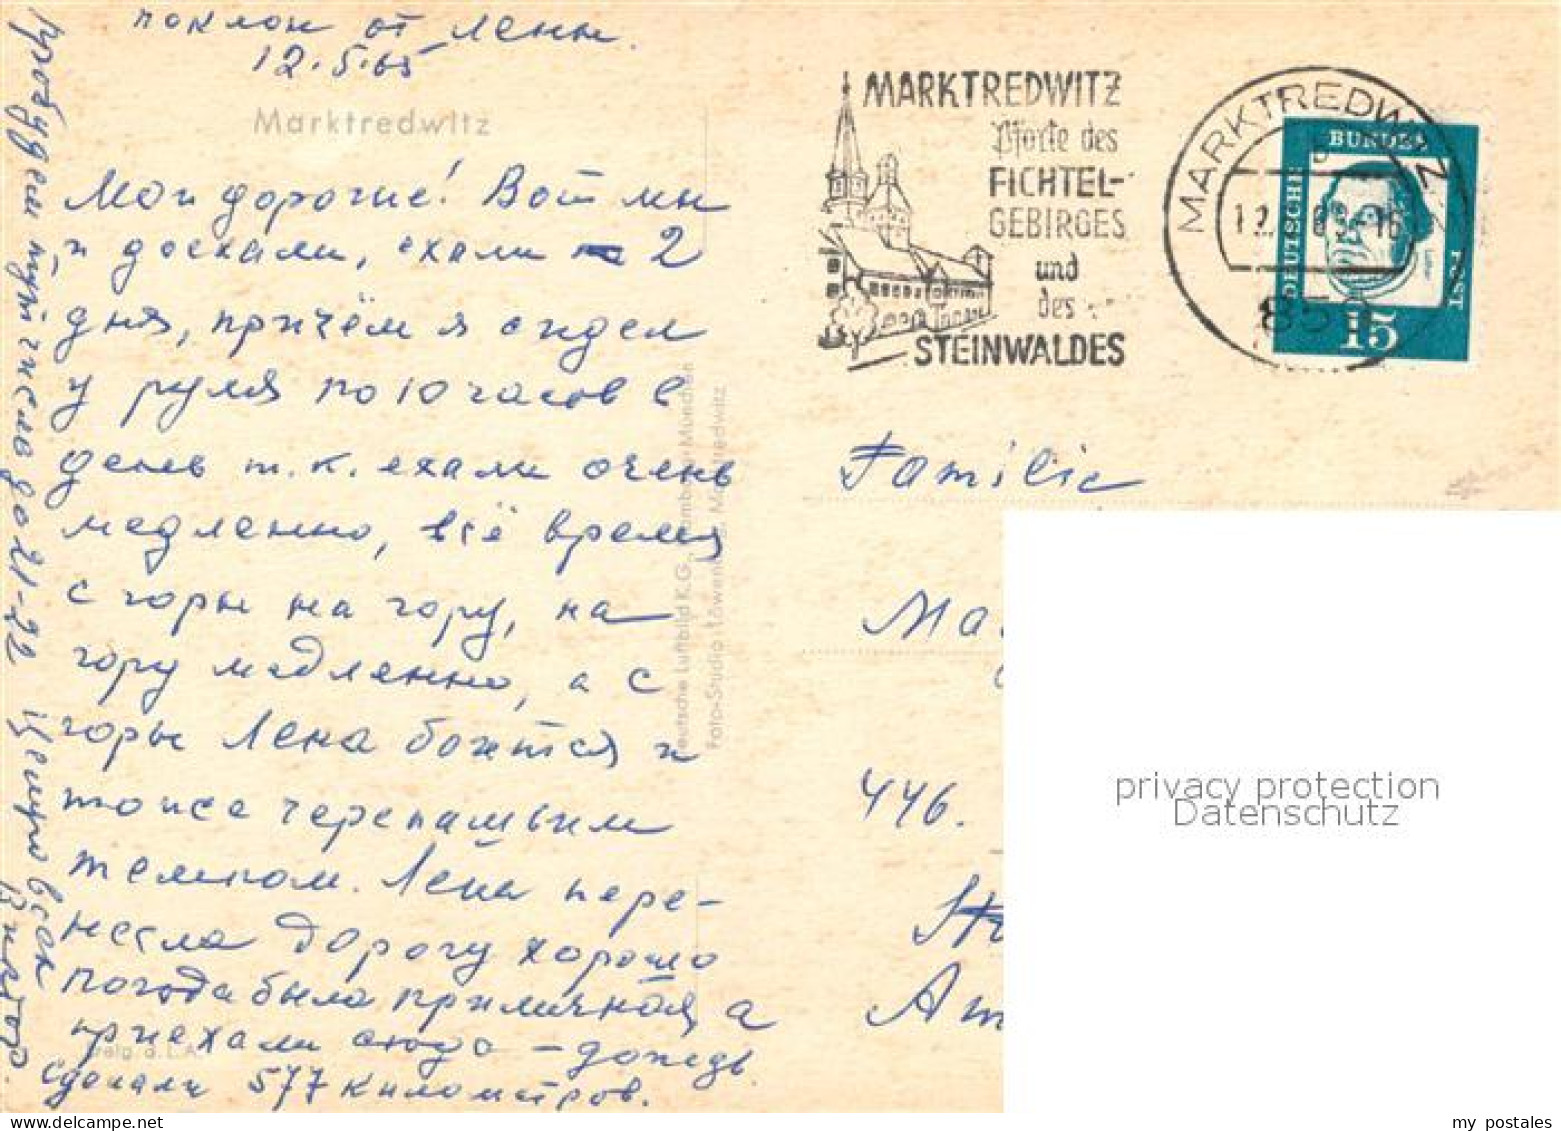 поклон от Лены.
12.5.65
Marktredwitz
Мои дорогие! Вот мы
и доехали, ехали 2
дня, причём я сидел
у руля по 10 часов в
день т.к. ехали очень
медленно, всё время
с горы на гору, на
гору медленно, а с
горы Лена боится и
тоже черепашьим
темпом. Лена пере-
несла дорогу хорошо
погода была приличная, а
приехали сюда – дождь.
Сделали 577 километров.
пробудем тут числа до 21-22 Целую всех
Виктор.
Deutsche Luftbild K.G.,
München
Foto-Studio Löwen
Marktredwitz
MARKTREDWITZ
Pforte des
FICHTEL-
GEBIRGES
und
des
STEINWALDES
MARKTREDWITZ
DEUTSCHE
BUNDES
POST
15
Familie
446.
privacy protection
Datenschutz
my postales